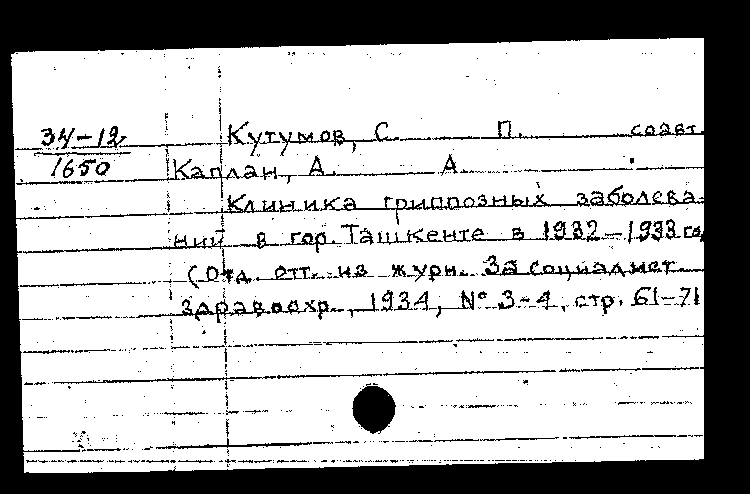 34-12
1650
Кутумов, С. П. соавт.
Каплан, А. А.
Клиника гриппозных заболева-
ний в гор. Ташкенте в 1932-1933 го
(Отд. отт. из журн. За социалист.
здравоохр., 1934, № 3-4, стр. 61-71